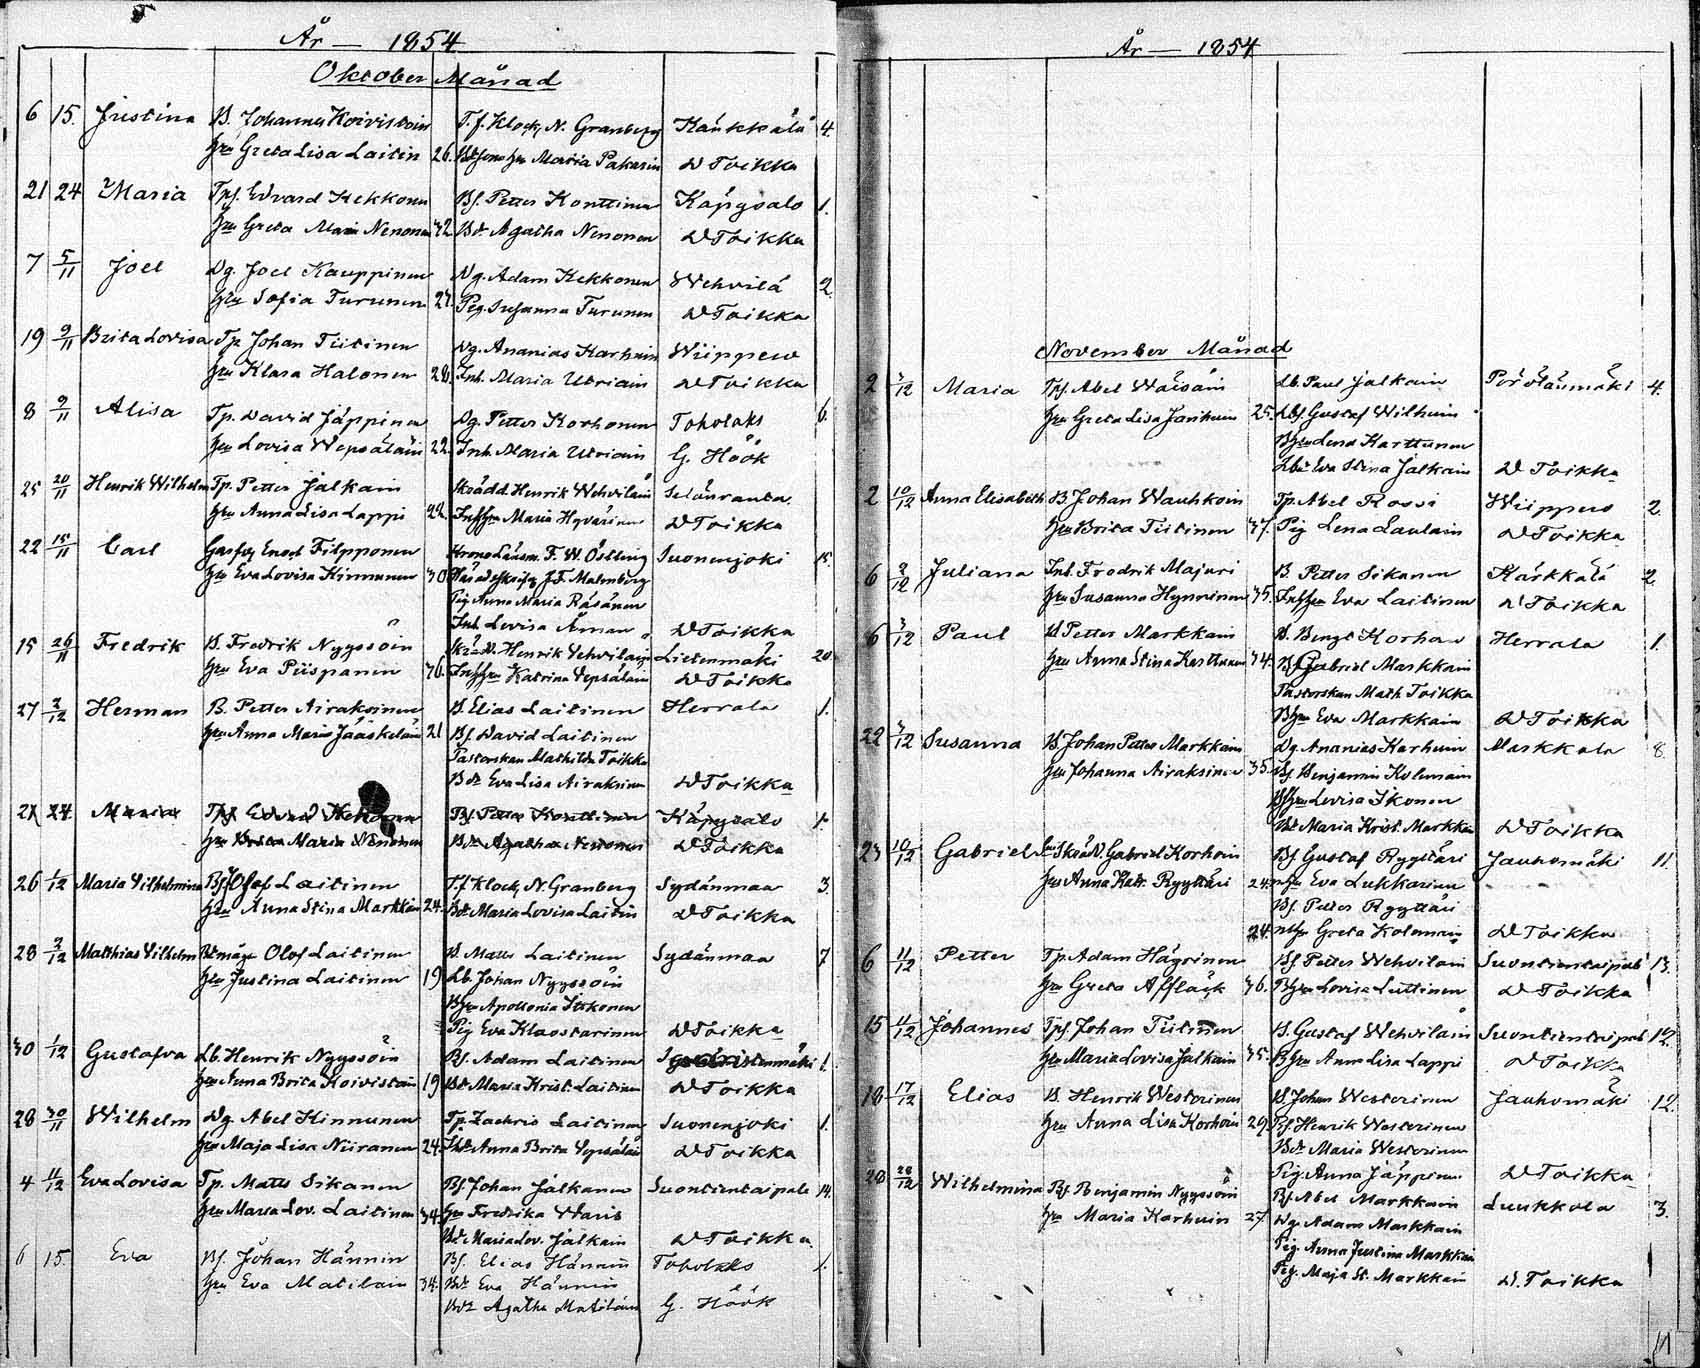 År — 1854
Oktober Månad
6 15. Justina B. Johannes Koivistoin T.f. Klock. N. Granberg Kärkkälä 4.
Hru Greta Lisa Laitin 26. Maria Pakarin D Toikka
21 24 Maria Tps. Edvard Kekkonen Bs. Petter Konttinen Käpysalo 1.
Hru Greta Maria Nenonen 32 Bdr Agatha Nenonen D Toikka
7 5/11 Joel Dg. Joel Kauppinen Dg. Adam Kekkonen Wehvilä 2
Hru Sofia Turunen 27. Pig. Susanna Turunen D Toikka
19 9/11 Brita Lovisa Tp Johan Tiitinen Dg. Ananias Karhuin Wiippero
Hru Klara Halonen 28. Inh. Maria Utriain D Toikka
8 9/11 Alisa Tp. David Jäppinen Dg. Petter Korhonen Toholaks 6.
Hru Lovisa Wepsäläin 22. Inh. Maria Utriain G. Höök
25 20/11 Henrik Wilhelm Tp. Petter Jalkain Skrädd. Henrik Wehviläin Selänranta
Hru Anna Lisa Lappi 22. Inhhru Maria Hyvärinen D Toikka
22 15/11 Carl Enoch Filpponen Krono Länsm. F. W. Östling Suonenjoki 15.
Hru Eva Lovisa Kinnunen 30 J. F. Malmberg
Pig Anna Maria Räsänen
Inh Lovisa Åman D Toikka
15 26/11 Fredrik B. Fredrik Nyyssöin Henrik Vehviläin Lietenmäki 20
Hru Eva Piispanen 36. Inhhru Katrina Vepsäläin D Toikka
27 2/12 Herman B. Petter Airaksinen B. Elias Laitinen Herrala 1.
Hru Anna Maria Jääskeläin 21 Bs. David Laitinen
Pastorskan Mathilda Toikka
Bdr Eva Lisa Airaksinen D Toikka
21 24. Maria Tps Edvard Kekkonen Bs. Petter Konttinen Käpysalo 1.
Hru Greta Maria Nenonen Bdr Agatha Nenonen D Toikka
26 1/12 Maria Vilhelmina Bs. Olof Laitinen T.f. Klock. N. Granberg Sydänmaa 3.
Hru Anna Stina Markkain 24. Bdr Maria Lovisa Laitin D Toikka
28 2/12 Matthias Vilhelm Bdmåge Olof Laitinen B. Matts Laitinen Sydänmaa 7
Hru Justina Laitinen 19 Lb. Johan Nyyssöin
Bhru Apollonia Itkonen
Pig Eva Klaostarinen D Toikka
30 1/12 Gustafva Lb. Henrik Nyyssöin Bs. Adam Laitinen 1.
Hru Anna Brita Koivistoin 19 Bdr Maria Krist. Laitinen D Toikka
28 30/11 Wilhelm Dg. Abel Kinnunen Tp. Zachris Laitinen Suonenjoki 1.
Hru Maja Lisa Niiranen 24. Anna Brita Vepsäläin D Toikka
4 11/12 Eva Lovisa Tp. Matts Sikanen Bs. Johan Jalkanen Suontientaipale 14.
Hru Maria Lov. Laitinen 34. Hru Fredrika Waris
Bdr Maria Lov. Jalkain D Toikka
6 15. Eva Bs. Johan Hännin Bs. Elias Hännin Toholaks 1.
Hru Eva Matilain 34. Bdr Eva Hännin
Bdr Agatha Matilain G. Höök
År — 1854
November Månad
2 3/12 Maria Tps. Abel Wäisäin Lb. Paul Jalkain Pörölänmäki 4.
Hru Greta Lisa Janhuin 25. Lbs. Gustaf Wilhuin
Bhru Lena Karttunen
Lbdr Eva Stina Jalkain D Toikka
2 10/12 Anna Elisabeth B. Johan Wauhkoin Tp. Abel Rossi Wiippero 2.
Hru Brita Tiitinen 37. Pig Lena Laulain D Toikka
6 2/12 Juliana Inh. Fredrik Majuri B. Petter Sikanen Kärkkälä 2.
Hru Susanna Hynninen 35. Inhhru Eva Laitinen D Toikka
6 3/12 Paul B Petter Markkain B. Bengt Korhoin Herrala 1.
Hru Anna Stina Karttunen 34. Bs Gabriel Markkain
Pastorskan Math Toikka
Bhru Eva Markkain D Toikka
22 3/12 Susanna B. Johan Petter Markkain Dg. Ananias Karhuin Markkala 8.
Hru Johanna Airaksinen 35. Bs Benjamin Kolemain
Bshru Lovisa Ikonen
Bdr Maria Krist. Markkain D Toikka
23 10/12 Gabriel Gabriel Korhoin Bs. Gustaf Ryyttäri Jauhomäki 11.
Hru Anna Katr. Ryyttäri 24. Eva Lukkarinen
Bs. Petter Ryyttäri
24. Greta Kolemain D Toikka
6 11/12 Petter Tp. Adam Häyrinen Bs. Petter Wehviläin Suontientaipal 13.
Hru Greta Affläck 36. Bhru Lovisa Luttinen D Toikka
15 11/12 Johannes Tps. Johan Tiitinen B. Gustaf Wehviläin Suontientaipal 12.
Hru Maria Lovisa Jalkain 35. Bhru Anna Lisa Lappi D Toikka
18 17/12 Elias B. Henrik Westerinen B. Johan Westerinen Jauhomäki 12.
Hru Anna Lisa Korhoin 29. Bs. Henrik Westerinen
Bdr Maria Westerinen
Pig. Anna Jäppinen D Toikka
28 28/12 Wilhelmina Bs. Benjamin Nyyssöin Bs. Abel Markkain Luukkola 3.
Hru Maria Karhuin 27. Dg. Adam Markkain
Pig. Anna Justina Markkain
Pig. Maja St. Markkain D. Toikka